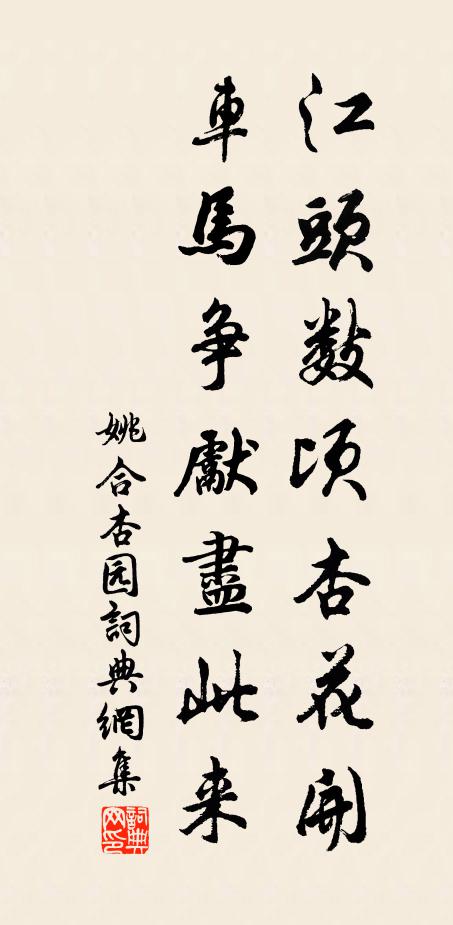 江頭数頃杏花開
車馬争獻盡此来
姚合杏园詞典網集
詞典网印